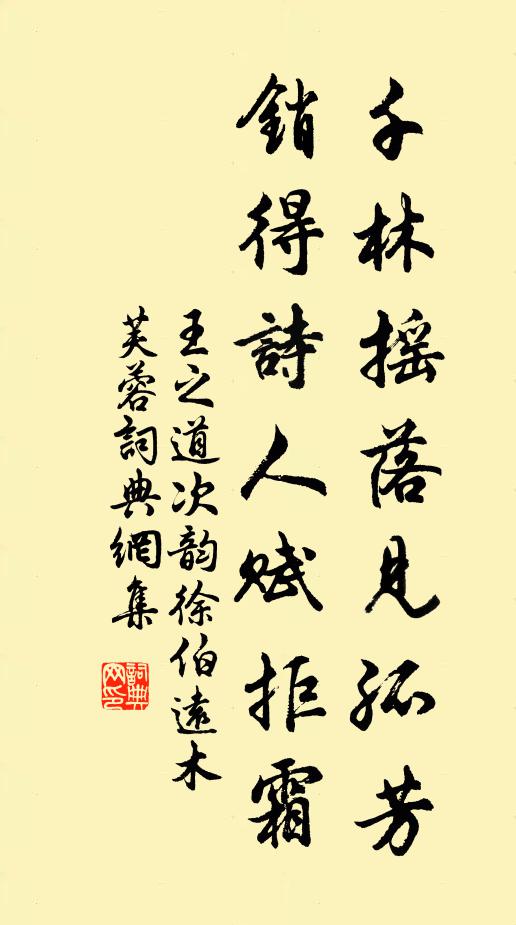 千林摇落見孤芳
銷得詩人赋拒霜
王之道次韵徐伯遠木
芙蓉詞典網集
詞典网印